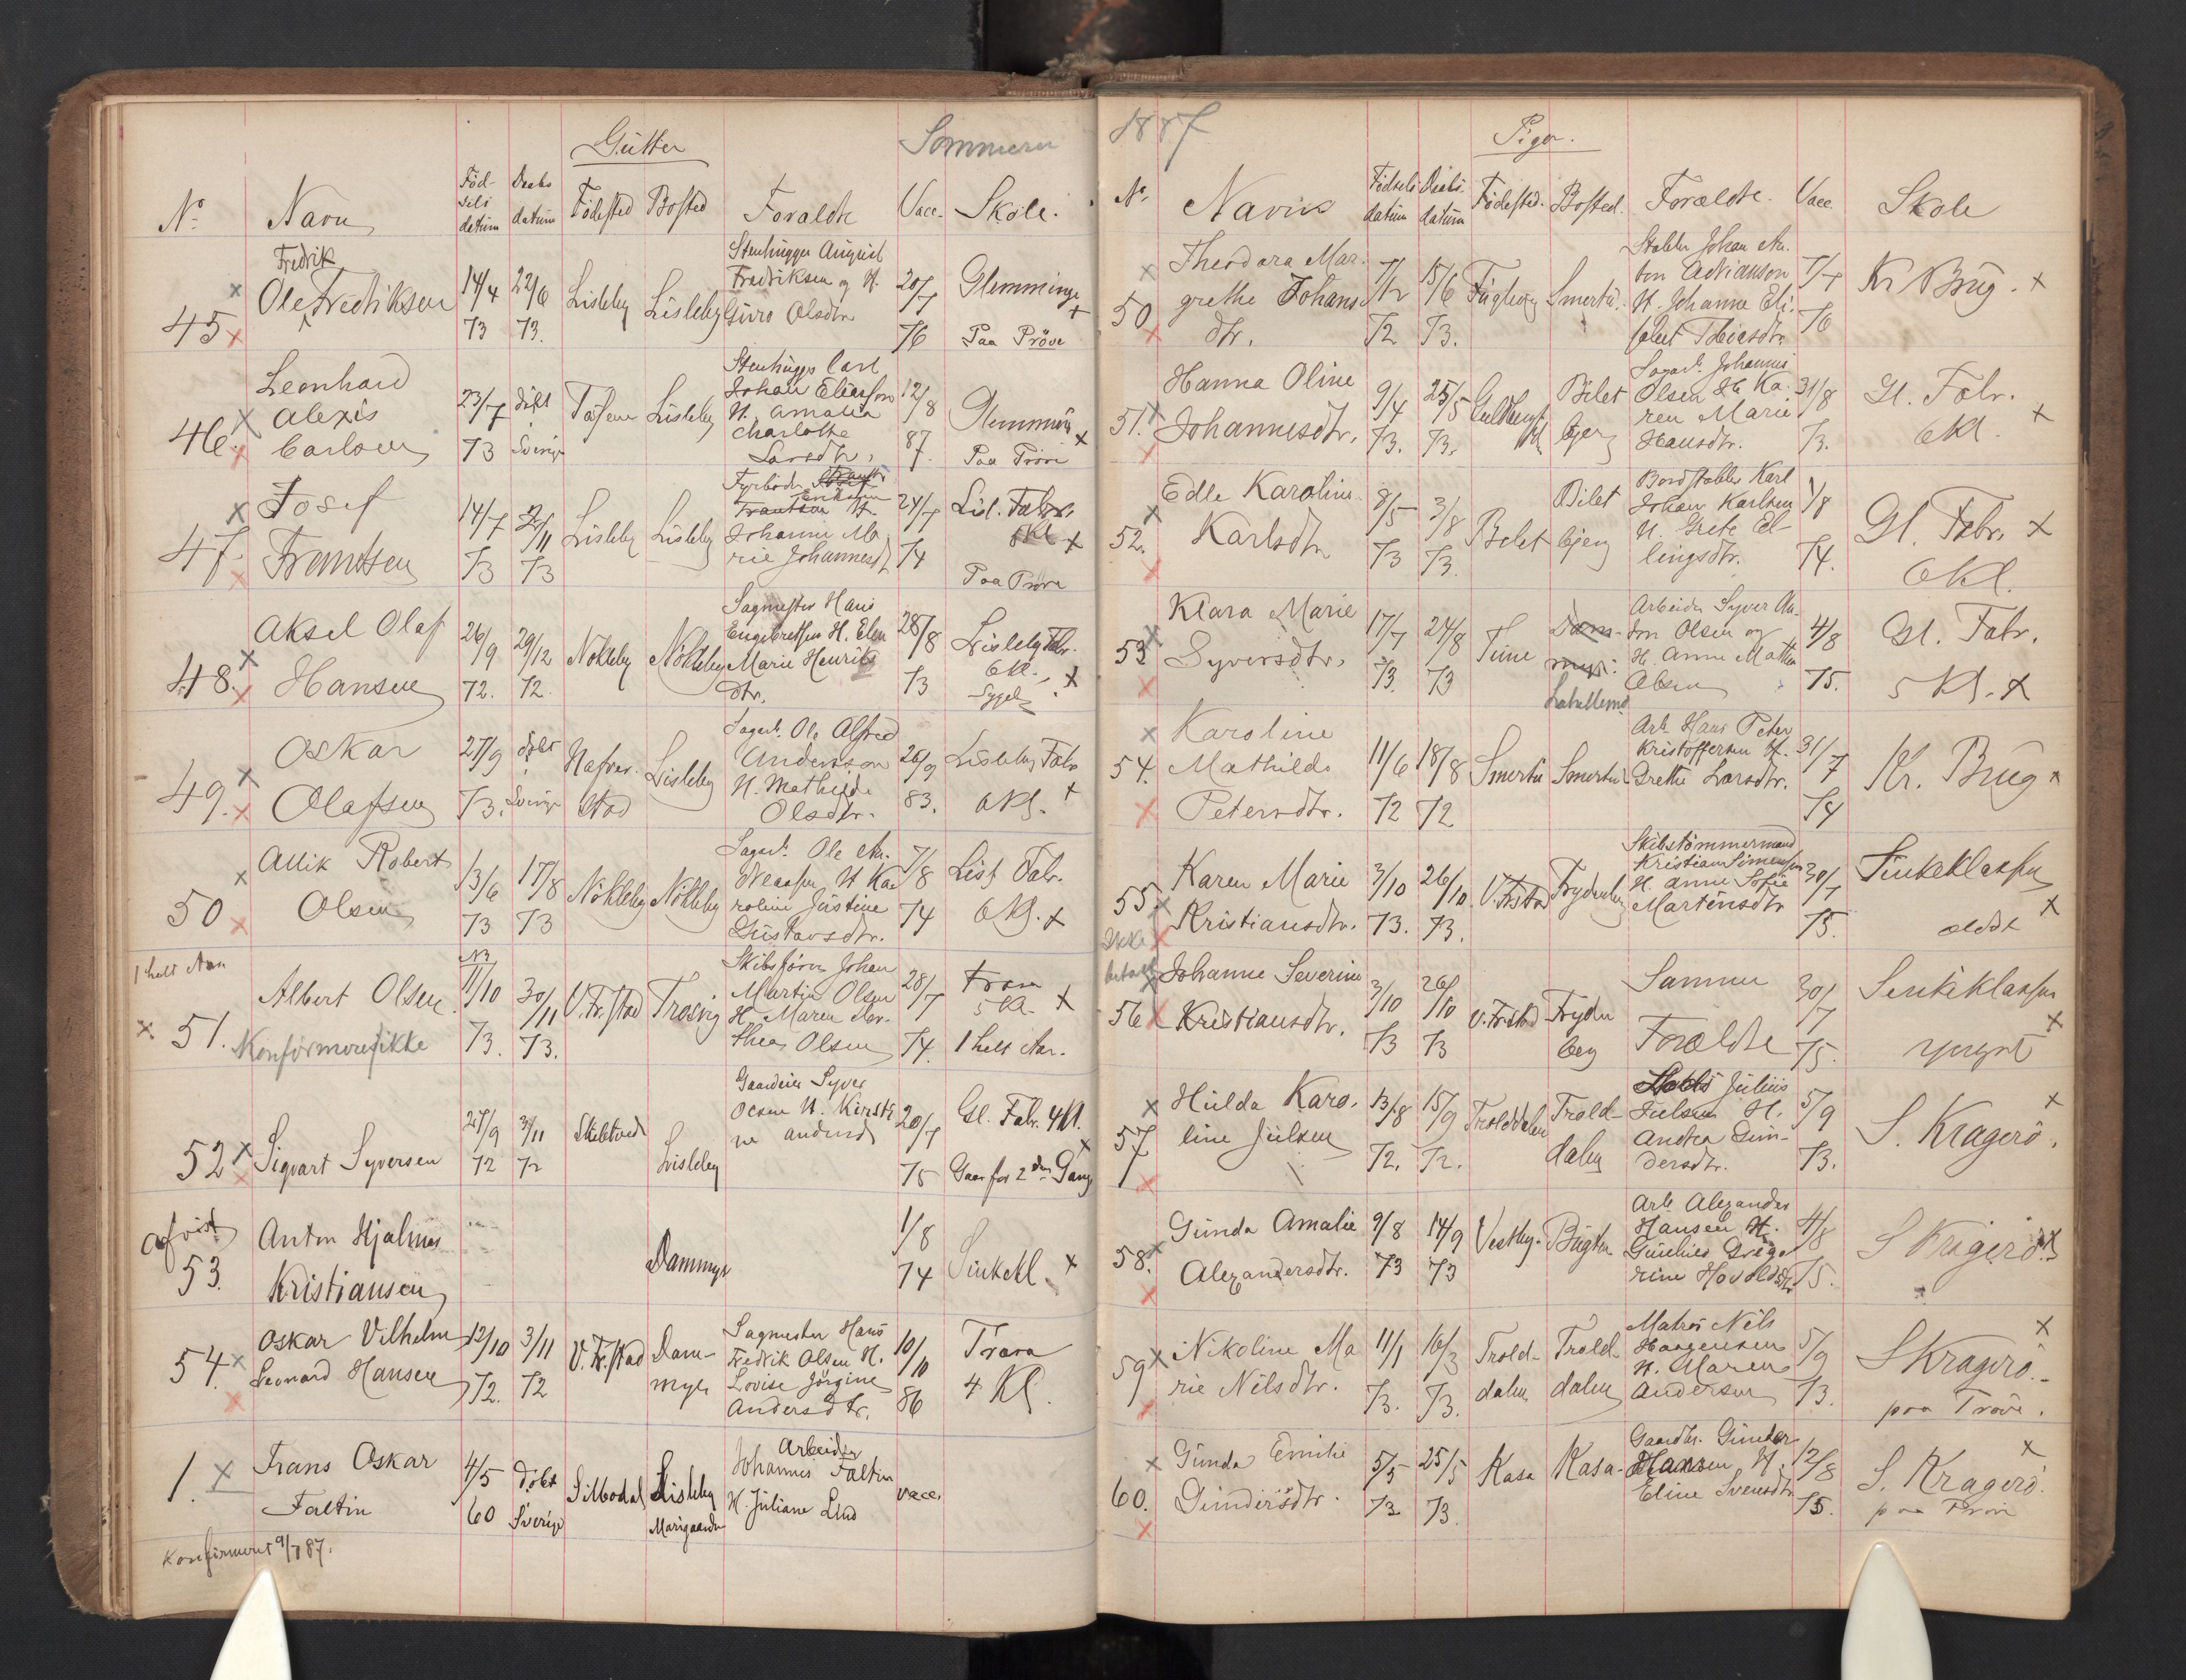 Gutter
Sommeren
No
Navn
Fød-
sels
datum
Daabs
datum
Fødested
Bosted
Foraldre
Vacc.
Skole.
45
Fredrik
Ole Fredriksen
14/4
73
22/6
73.
Lisleby
Lisleby
Stenhugger August
Fredriksen og H.
Guro Olsdtr
20/7
76
Glemminge
Paa Prøve
46.
Leonhard
Alexis
Carlsen
23/7
73
døbt
Sverige
Lisleby
Stenhugger Carl
Johan Eliasson
H. Amalia
Charlotte
Larsdtr.
12/8
87
Glemminge
Paa Prøve
47.
Josef
Frantsen
14/7
73
73
Lisleby
Lisleby
Fyrbøder
Frantsen H.
Johanne Ma
rie Johannesdt
24/7
74
Lisl. Fabr.
6 Kl
Paa Prøve
48.
Aksel Olaf
Hansen
26/9
72.
29/12
72
Nøkleby
Nøkleby
Sagmester Hans
Engebretsen H. Elen
Marie Henriks
dtr.
28/8
73
Lisleby Fabr.
6 Kl.
49.
Oskar
Olafsen
27/9
73.
døbt
Sverige
Hafres-
stad
Lisleby
Sagarb. Ole Alfred
Anderson
H. Mathilde
Olsdtr.
26/9
83.
Lisleby Fabr
6 Kl.
50
Alik Robert
Olsen
13/6
73
17/8
73
Nøkleby
Nøkleby
Sagarb. Ole An-
dreassen H Ka
roline Justine
Gustavsdtr.
7/8
74
Lisl Fabr.
6 Kl.
1 helt Aar
51.
Albert Olsen
Konfirmeres ikke
11/10
73.
30/11
73.
V. Fr.stad
Trosvig
Skibsfører Johan
Martin Olsen
H. Maren Do-
thea Olsen
28/7
74.
Trara
5 Kl.
1 helt Aar.
52
Sigvart Syversen
27/9
72
3/11
72
Skibtved
Lisleby
Gaardeier Syver
Olsen H. Kirsti
ne Andersd
20/7
75
Gl. Fabr. 4 Kl.
Gaar for 2den Gang
afvist
53.
Anton Hjalmar
Kristiansen
Dammyr
1/8
74
Sinkekl.
54.
Oskar Vilhelm
Leonard Hansen
12/10
72.
3/11
72
V. Fr.stad
Dam-
myr
Sagmester Hans
Fredrik Olsen H.
Lovise Jørgine
Andersdtr.
10/10
86
Trara
4 Kl.
1.
Frans Oskar
Faltin
4/5
60
Døbt
Sverige
Silbodal
Lisleby
Marigaarden
Arbeider
Johannes Faltin
H. Juliane Lind
vacc.
Konfirmeret 9/7 87.
1887
Piger.
No.
Navn
Fødsels
datum
Daabs-
datum
Fødested.
Bosted.
Forældre.
Vacc.
Skole
50
Theodora Mar-
grethe Johans
dtr.
7/12
72
15/6
73.
Fuglevig
Smertu.
Stabler Johan An-
ton Adrianson
H. Johanne Eli-
sabet Tobiasdtr
7/7
76
Kr Brug.
51.
Hanna Oline
Johannesdtr.
9/4
73.
25/5
73.
Bilet
bjerg
Sagarb. Johannes
Olsen H. Ka-
ren Marie
Hansdtr.
31/8
73.
Gl. Fabr.
6 Kl.
52.
Edle Karoline
Karlsdtr
8/5
73
3/8
73.
Bilet
Bilet
bjerg
Bordstabler Karl
Johan Karlsen
H. Grete El-
lingsdtr.
1/8
74.
Gl. Fabr.
6 Kl.
53
Klara Marie
Syversdtr.
17/7
73.
24/8
73
Tune
Dam-
myr.
Labakkemo
Arbeider Syver An-
ton Olsen og
H. Anne Mathea
Olsen
4/8
75.
Gl. Fabr.
5 Kl.
54.
Karoline
Mathilde
Petersdtr.
11/6
72
18/8
72
Smertu
Smertu
Arb. Hans Peter
Kristoffersen H.
Grethe Larsdtr.
31/7
74
Kr. Brug
55.
Ikke
betalt
Karen Marie
Kristiansdtr.
3/10
73.
26/10
73.
V. Frstad
Frydenberg
Skibstømmermand
Kristian Simensen
H. Anne Sofie
Martensdtr
30/7
75.
Sinkeklassen
ældst
56
Johanne Severine
Kristiansdtr.
3/10
73
26/10
73
V. Fr.stad
Fryden
berg
Samme
Forældre
30/7
75.
Sinkeklassen
yngst
57
Hulda Karo-
line Julsen
13/8
72.
15/9
72.
Trolddalen
Trold-
dalen
Julius
Julsen H.
Andrea Gun-
dersdtr.
5/9
73.
S. Kragerø.
58.
Gunda Amalie
Alexandersdtr.
9/8
73
14/9
73
Vestby.
Bugten
Arb. Alexander
Hansen H.
rine
4/8
75.
S Kragerø.
59
Nikoline Ma
rie Nilsdtr.
11/1
73.
16/3
73.
Trold-
dalen
Trold-
dalen
Matros Nils
Haagensen
H. Maren
Andersen
5/9
73.
S Kragerø.
paa Prøve.
60.
Gunda Emilie
Gundersdtr.
5/5
73
25/5
73.
Kasa
Kasa
Gaardbr. Gunder
Hansen H.
Eline Svensdtr
12/8
75.
S. Kragerø.
paa Prøve